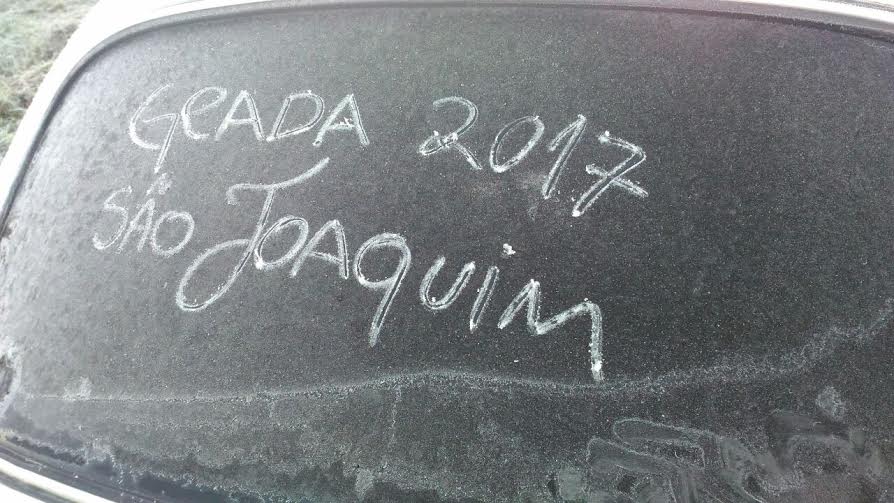 GeADA 2017
SÃO JOAQUIM